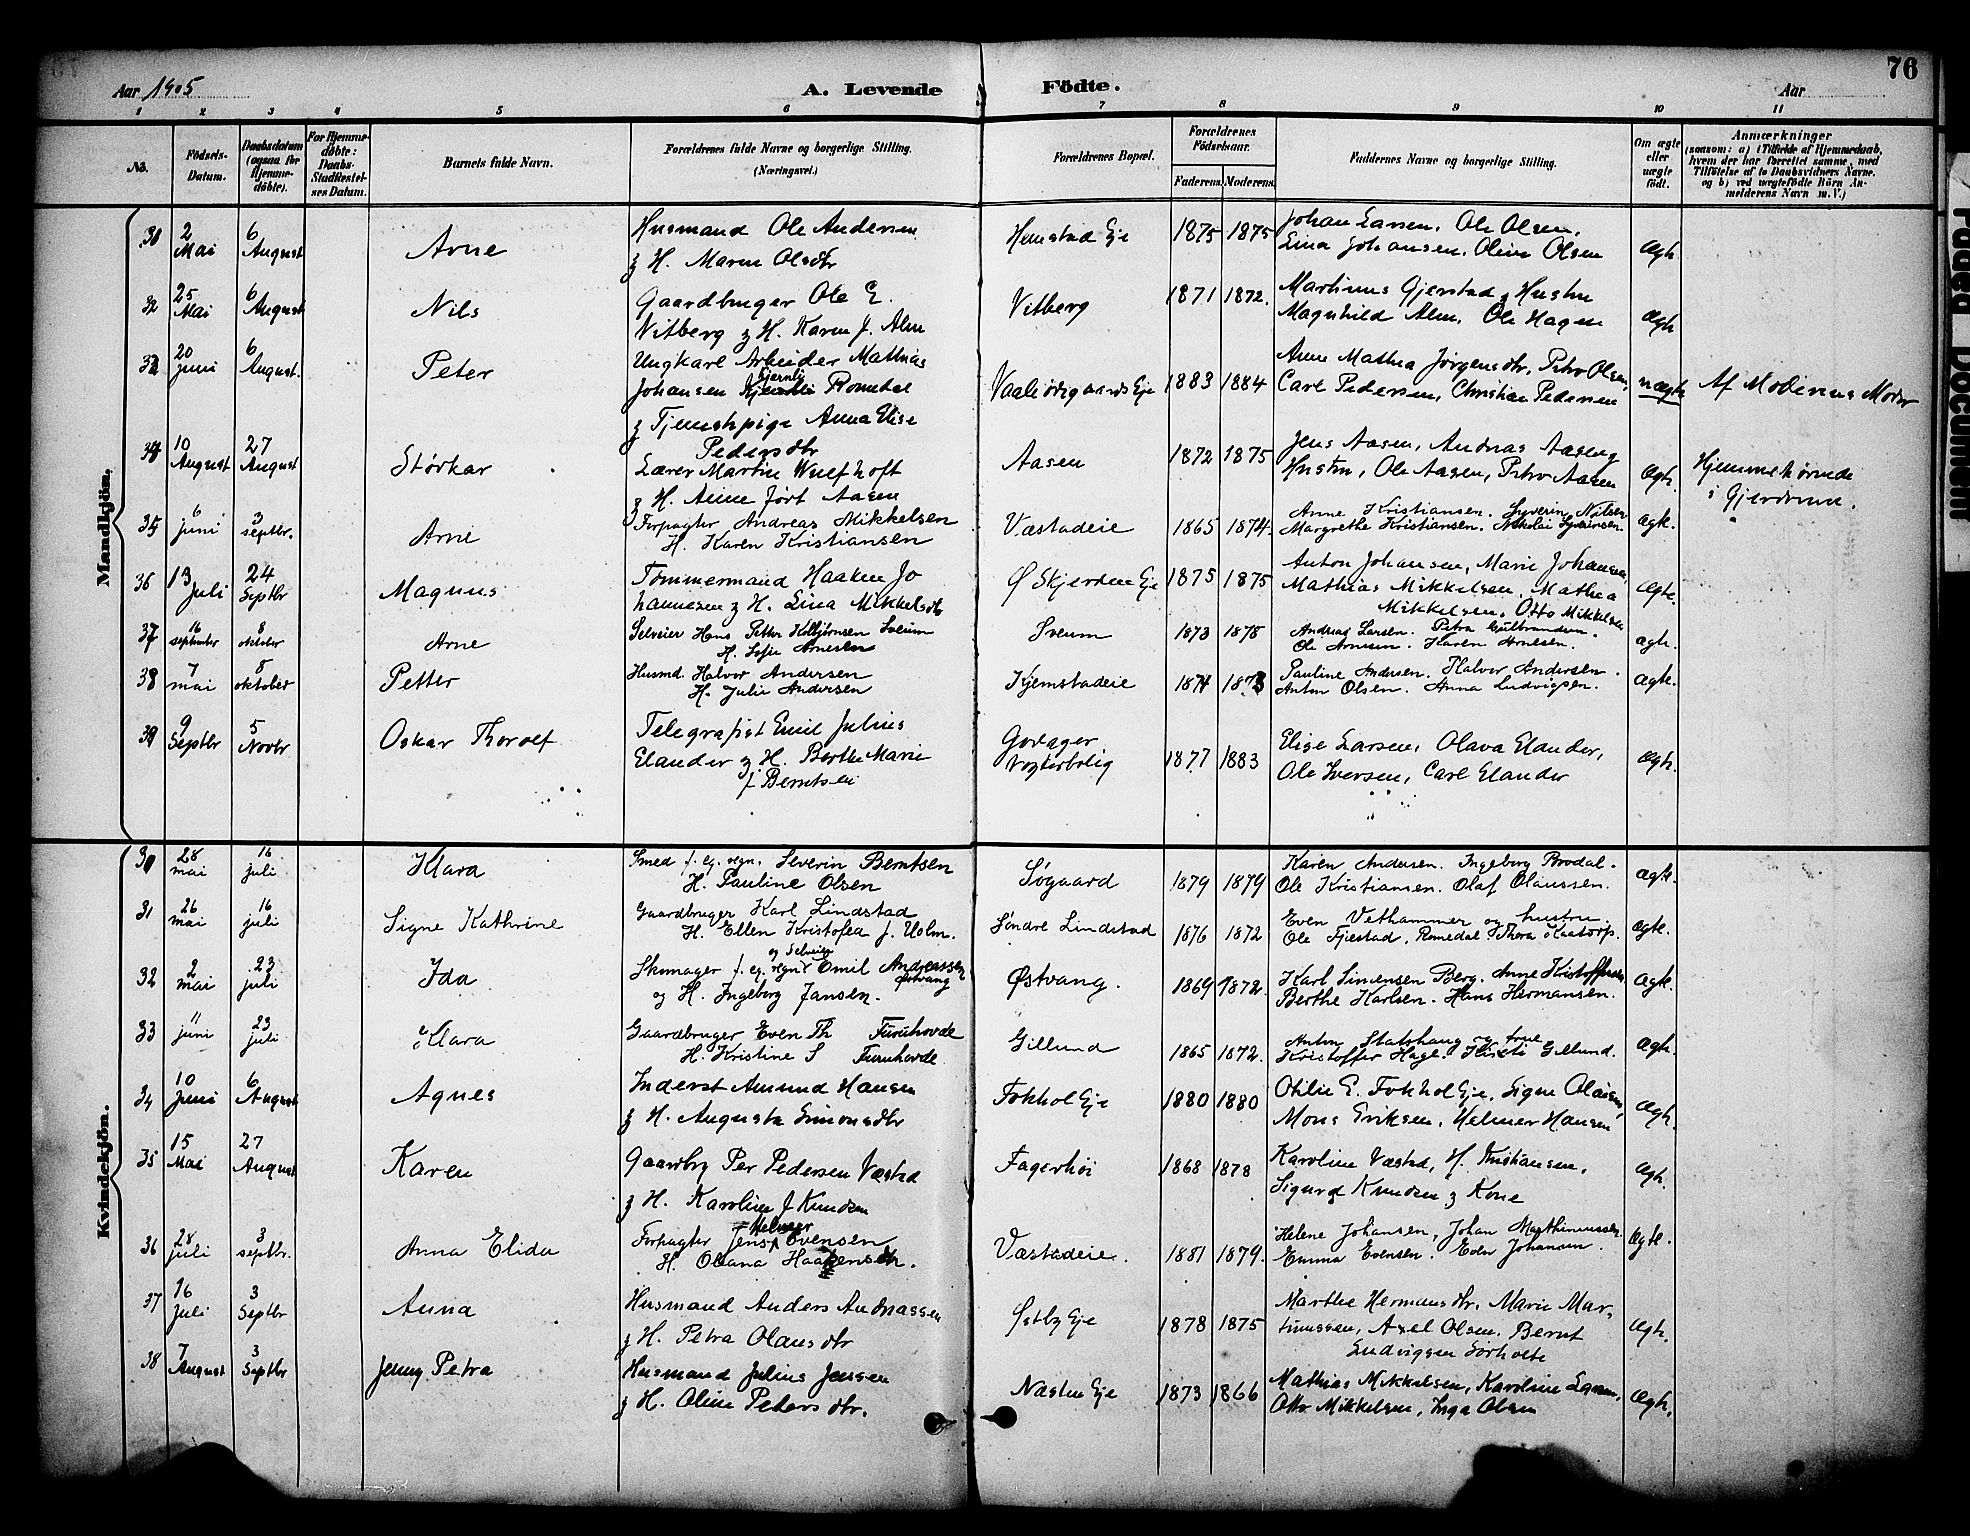 Aar 1905
A. Levende Födte.
Aar
76
1 2 3 4 5 6 7 8 9 10 11
No.
Födsels-Datum.
Daabsdatum (ogsaa for Hjemme-døbte).
For Hjemme-døbte: Daabs-Stadfæstelses Datum.
Barnets fulde Navn.
Forældrenes fulde Navne og borgerlige Stilling. (Næringsvei.)
Forældrenes Bopæl.
Forældrenes Födselsaar.
Faderens. Moderens.
Faddernes Navne og borgerlige Stilling.
Om ægte eller uægte födt.
Anmærkninger
(saasom: a) i Tilfælde af Hjemmedaab, hvem der har forrettet samme, med Tilföielse af to Daabsvidners Navne. og b) ved uægtefödte Börn Anmelderens Navn m. V.)
Mandkjön.
2 Mai 6 August Arne Husmand Ole Andersen
& H. Maren Olsdtr Hemstad Eje 1875 1875 Johan Larsen, Ole Olsen,
Lina Johansen, Oline Olsen Ægte.
32 25 Mai 6 August Nils Gaardbruger Ole E.
Vitberg & H. Karen J. Alm Vitberg 1871 1872. Martinus Gjerstad & Hustru
Magnhild Alm, Ole Hagen Ægte
20 Juni 6 August. Peter Ungkarl Arbeider Mathias
Johansen Kjernli Romedal
& Tjenestepige Anna Elise
Pedersdtr Eje 1883 1884 Anne Mathea Jørgensdtr, Peter Olsen,
Carl Pedersen, Christian Pedersen uægte Af Moderens Moder
34 10 August 27 August Størkar Lærer Martin Wulfhoft
& H. Anne født Aasen Aasen 1872 1875 Jens Aasen, Andreas Aasen &
Hustru, Ole Aasen, Peter Aasen Ægte. Hjemmehørende
i Gjerdrum.
35 6 juni 3 septbr. Arne Forpagter Andreas Mikkelsen
H. Karen Kristiansen Væstadeie 1865 1874. Anne Kristiansen. Syverin Nilsen
Margrethe Kristiansen. Nikolai Syverinsen. Ægte.
36 13 Juli 24 Septbr Magnus Tømmermand Haaken Jo
hannesen & H. Lina Mikkelsdtr Ø Skjerden Eje 1875 1875 Anton Johansen, Marie Johansen,
Mathias Mikkelsen, Mathea
Mikkelsen, Otto Mikkelsen Ægte.
37 16 september 8 oktober Arne Selveier Hans Petter Kolbjørnsen Sveum
H. Sofie Arnesen Sveum 1873 1878 Andreas Larsen. Petra Gulbrandsen.
Ole Arnesen. Karen Arnesen. ægte.
38 7 mai 8 oktober Petter Husmd. Halvor Andersen
H. Julie Andersen Kjemstadeie 1874 1873 Pauline Andersen. Halvor Andersen.
Anton Olsen. Anna Ludvigsen. ægte.
39 9 Septbr 5 Novbr Oskar Thorolf Telegrafist Emil Julius
Elander & H. Berthe Marie
f. Berntsen Gorager
Vogterbolig 1877 1883 Elise Larsen, Olava Elander,
Ole Iversen, Carl Elander Ægte.
Kvindekjön.
30 28 mai 16 juli Klara Smed f. eg. regn. Severin Berntsen
H. Pauline Olsen Søgaard 1879 1879 Karen Andersen. Ingeborg Brodal.
Ole Kristiansen. Olaf Olaussen. ægte.
31 26 mai 16 juli Signe Kathrine Gaardbruger Karl Lindstad
H. Ellen Kristofea f. Holm. Søndre Lindstad 1876 1872 Even Vethammer og hustru.
Ole Fjestad, Romedal. Thora Kaatorp. ægte.
32 2 mai 23 juli Ida Skomager f. eg. regn. og Selveier Emil Andreassen Østvang
og H. Ingeborg Jansen. Østvang. 1869 1872. Karl Simensen Berg. Anne Kristoffersen
Berthe Karlsen. Hans Hermansen. Ægte.
33 11 juni 23 juli Klara Gaardbruger Even Th Furuhovde
H. Kristine S Furuhovde Gillund 1865 1872. Anton Stabshaug og frue
Kristoffer Hage. Kirsti Gillund. Ægte.
34 10 Juni 6 August Agnes Inderst Amund Hansen
& H. Augusta Simonsdtr Fokhol Eje 1880 1880 Otilie E. Fokhol Eje, Signe Olaisen,
Mons Eriksen, Helmer Hansen Ægte.
35 15 Mai 27 August Karen Gaardbr Per Pedersen Væstad
& H. Karoline f Knudsen Fagerhøi 1868 1878 Karoline Væstad, H. Kristiansen,
Sigurd Knudsen & Kone Ægte.
36 28 juli 3 septbr. Anna Elida Forpagter Jens Helmer Evensen
H. Oleana Haakensen. Væstadeie. 1881 1879. Helene Johansen, Johan Marthinussen
Emma Evensen. Even Johansen. Ægte.
37 16 Juli 3 Septbr Anna Husmand Anders Andreassen
& H. Petra Olausdtr Østby Eje 1878 1875 Marthe Hermansdtr, Marie Mar-
tinussen, Axel Olsen, Bernt
Ludvigsen Sørholte Ægte.
38 7 August 3 Septbr Jenny Petra Husmand Julius Jensen
& H. Oline Pedersdtr. Næsten Eje 1873 1866 Mathias Mikkelsen, Karoline Larsen,
Otto Mikkelsen, Inga Olsen Ægte.
Faded Document